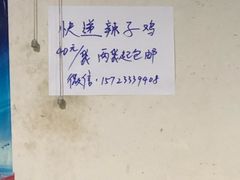 快递辣子鸡
40元/袋 两袋起包邮
微信:15723339408